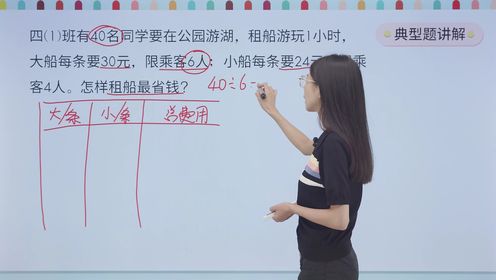 典型题讲解
四(1)班有40名同学要在公园游湖，租船游玩1小时，
大船每条要30元，限乘客6人；小船每条要24元
乘
客4人。怎样租船最省钱？
40÷6=
大/条 小/条 总费用